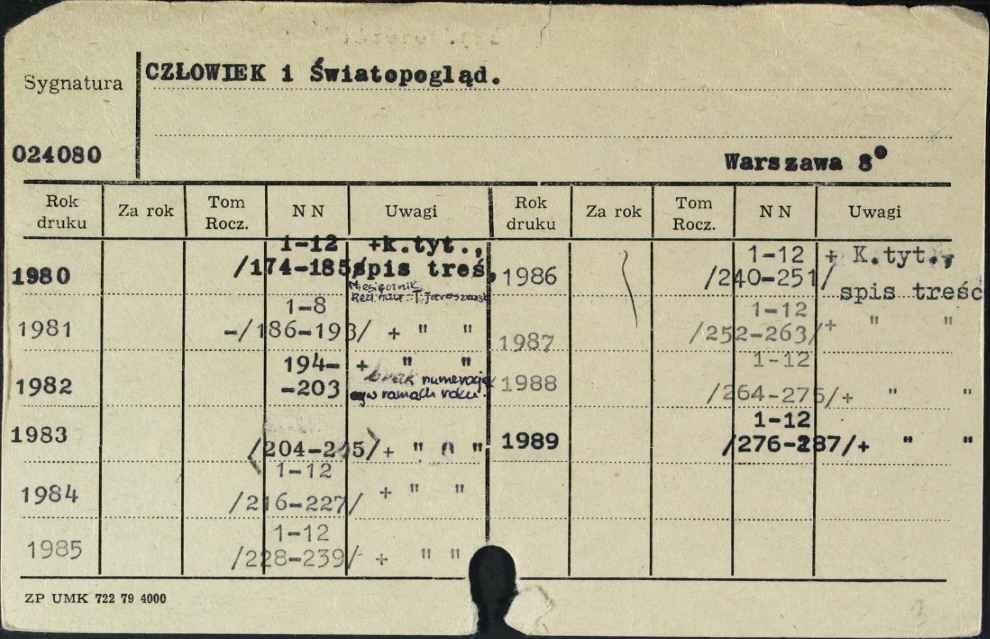 Sygnatura
CZŁOWIEK i Światopogląd.
024080
Warszawa 8°
Rok druku Za rok Tom Rocz. N N Uwagi Rok druku Za rok Tom Rocz. N N Uwagi
1980 1-12 /174-185/ +k.tyt., spis treś,
Miesięcznik
Red. nacz.: T. Jaroszewski
1981 1-8 -/186-193/ + " "
1982 194- -203 + " "
brak numeracji
w ramach roku.
1983 /204-215/ + " "
1984 1-12 /216-227/ + " "
1985 1-12 /228-239/ + " "
1986 1-12 /240-251/ + K.tyt., spis treśc
1987 1-12 /252-263/+ " "
1988 1-12 /264-275/+ " "
1989 1-12 /276-287/+ " "
ZP UMK 722 79 4000